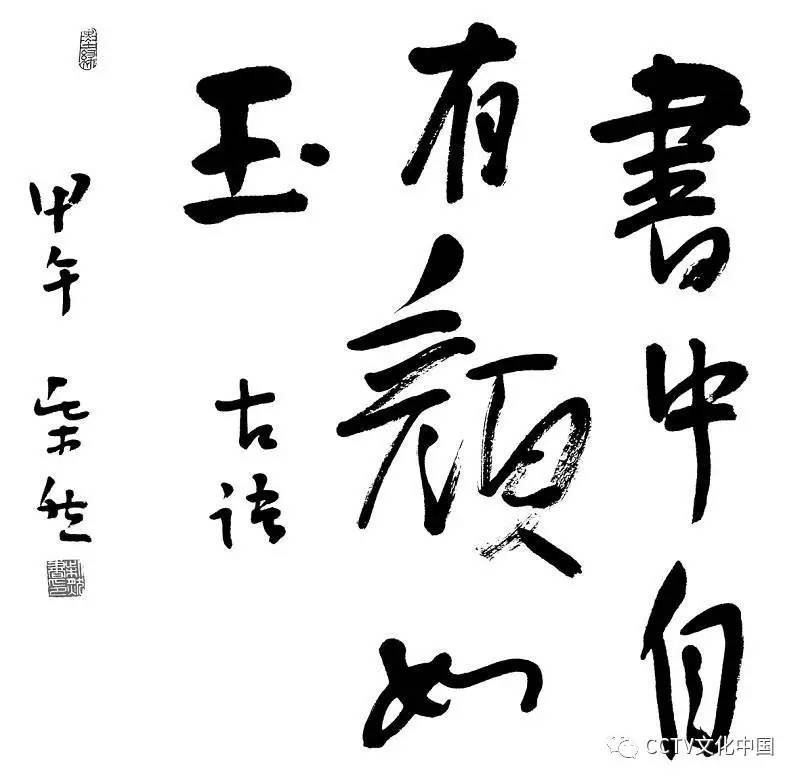 書中自
有顏如
玉
古語
甲午
CCTV文化中国